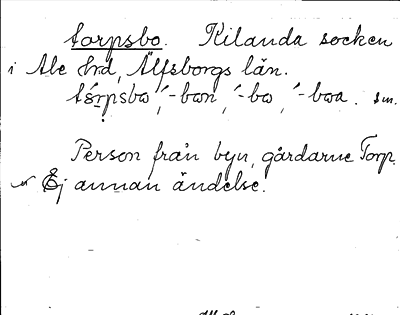 torpsbo. Kilanda socken
i Ale Hrd, Älfsborgs län.
tórpsbo, -bon, -bo, -boa. sm.
Person från byn, gårdarne Torp.
Ej annan ändelse.